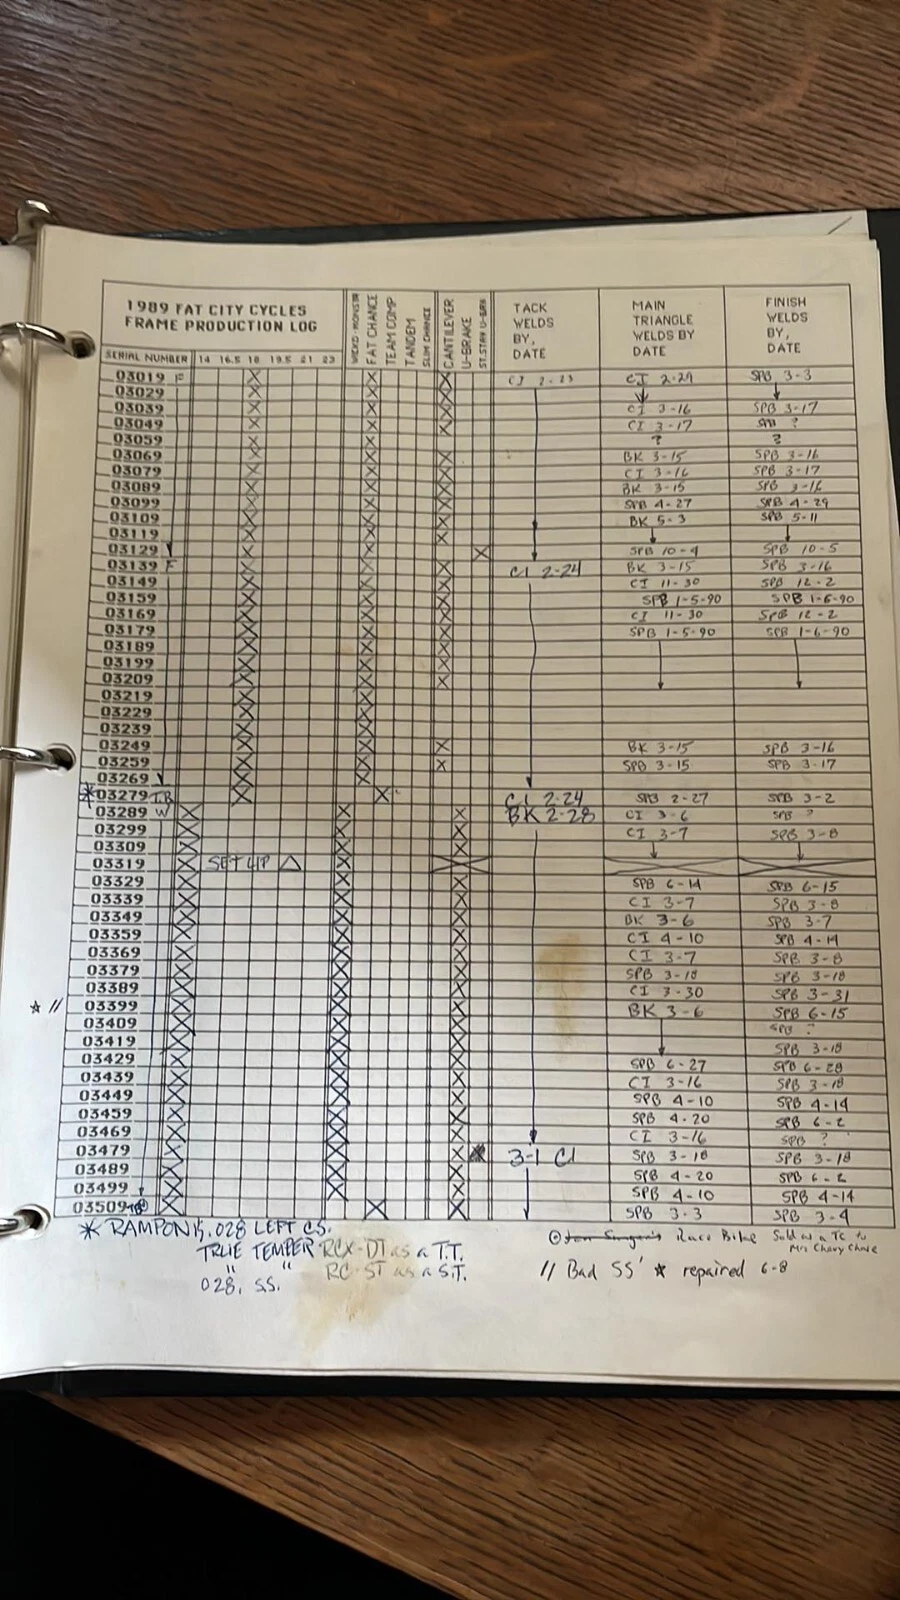 1989 FAT CITY CYCLES
FRAME PRODUCTION LOG
SERIAL NUMBER 14 16.5 18 19.5 21 23
FAT CHANCE TEAM COMP TANDEM SLIM CHANCE CANTILEVER U-BRAKE
TACK WELDS BY, DATE
MAIN TRIANGLE WELDS BY DATE
FINISH WELDS BY, DATE
03019 F X X X CI 2-23 CI 2-29 SPB 3-3
03029 X X X
03039 X X X CI 3-16 SPB 3-17
03049 X X X CI 3-17 ?
03059 X X ? ?
03069 X X X BK 3-15 SPB 3-16
03079 X X X CI 3-16 SPB 3-17
03089 X X X BK 3-15 SPB 3-16
03099 X X X SPB 4-27 SPB 4-29
03109 X X X BK 5-3 SPB 5-11
03119 X X X
03129 X X X SPB 10-4 SPB 10-5
03139 F X X X CI 2-24 BK 3-15 SPB 3-16
03149 X X X CI 11-30 SPB 12-2
03159 X X X SPB 1-5-90 SPB 1-6-90
03169 X X X CI 11-30 SPB 12-2
03179 X X X SPB 1-5-90 SPB 1-6-90
03189 X X X
03199 X X X
03209 X X X
03219 X X
03229 X X
03239 X X
03249 X X X BK 3-15 SPB 3-16
03259 X X X SPB 3-15 SPB 3-17
03269 X X
* 03279 X X CI 2-24 SPB 2-27 SPB 3-2
03289 W X X X BK 2-28 CI 3-6 SPB ?
03299 X X X CI 3-7 SPB 3-8
03309 X X X
03319 X SET UP △ X
03329 X X X SPB 6-14 SPB 6-15
03339 X X X CI 3-7 SPB 3-8
03349 X X X BK 3-6 SPB 3-7
03359 X X X CI 4-10 SPB 4-14
03369 X X X CI 3-7 SPB 3-8
03379 X X X SPB 3-18 SPB 3-18
03389 X X X CI 3-30 SPB 3-31
☆ // 03399 X X X BK 3-6 SPB 6-15
03409 X X X SPB ?
03419 X X X SPB 3-18
03429 X X X SPB 6-27 SPB 6-28
03439 X X X CI 3-16 SPB 3-18
03449 X X X SPB 4-10 SPB 4-14
03459 X X X SPB 4-20 SPB 6-2
03469 X X X CI 3-16 SPB ?
03479 X X X 3-1 CI SPB 3-18 SPB 3-18
03489 X X X SPB 4-20 SPB 6-2
03499 X X X SPB 4-10 SPB 4-14
03509 X X X SPB 3-3 SPB 3-4
* .028 LEFT CS.
TRUE TEMPER RCX-DT as a T.T.
" " RC-ST as a S.T.
028, SS.
Race Bike Sold as a TC to
Mrs Chevy Chase
// Bad SS' ☆ repaired 6-8